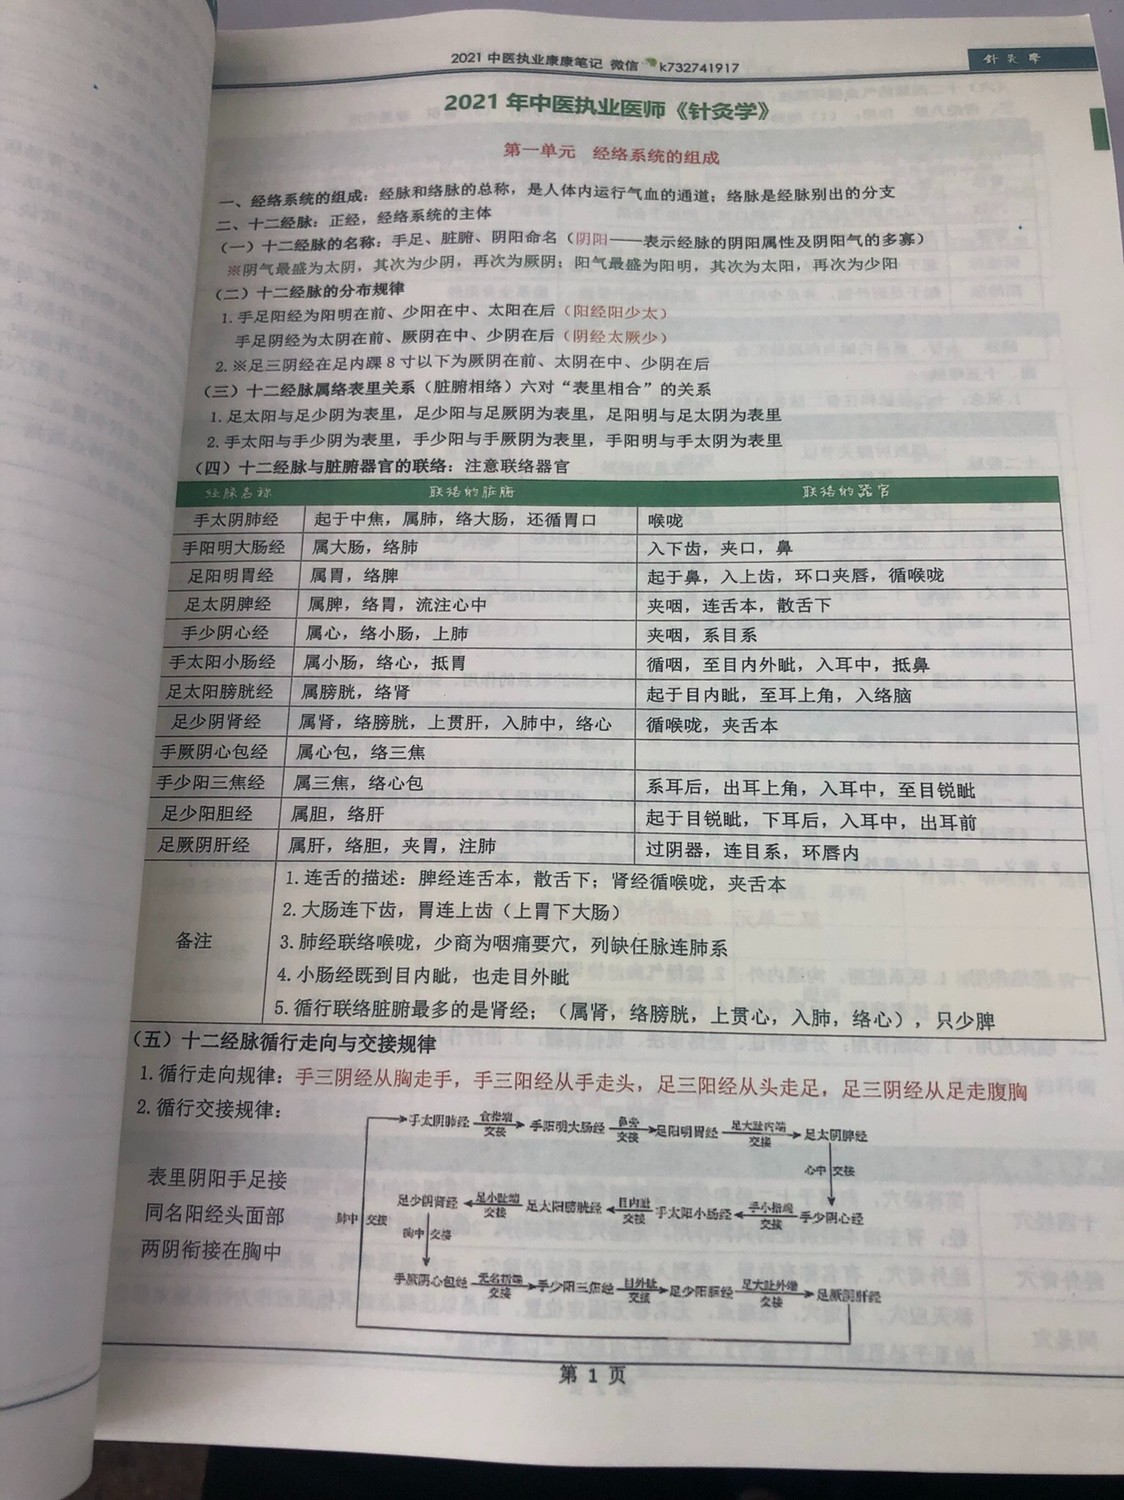 2021 中医执业康康笔记 微信 k732741917
针灸学
2021 年中医执业医师《针灸学》
第一单元 经络系统的组成
一、经络系统的组成：经脉和络脉的总称，是人体内运行气血的通道；络脉是经脉别出的分支
二、十二经脉：正经，经络系统的主体
（一）十二经脉的名称：手足、脏腑、阴阳命名（阴阳——表示经脉的阴阳属性及阴阳气的多寡）
※阴气最盛为太阴，其次为少阴，再次为厥阴；阳气最盛为阳明，其次为太阳，再次为少阳
（二）十二经脉的分布规律
1.手足阳经为阳明在前、少阳在中、太阳在后（阳经阳少太）
手足阴经为太阴在前、厥阴在中、少阴在后（阴经太厥少）
2.※足三阴经在足内踝 8 寸以下为厥阴在前、太阴在中、少阴在后
（三）十二经脉属络表里关系（脏腑相络）六对“表里相合”的关系
1.足太阳与足少阴为表里，足少阳与足厥阴为表里，足阳明与足太阴为表里
2.手太阳与手少阴为表里，手少阳与手厥阴为表里，手阳明与手太阴为表里
（四）十二经脉与脏腑器官的联络：注意联络器官
经脉名称 联络的脏腑 联络的器官
手太阴肺经 起于中焦，属肺，络大肠，还循胃口 喉咙
手阳明大肠经 属大肠，络肺 入下齿，夹口，鼻
足阳明胃经 属胃，络脾 起于鼻，入上齿，环口夹唇，循喉咙
足太阴脾经 属脾，络胃，流注心中 夹咽，连舌本，散舌下
手少阴心经 属心，络小肠，上肺 夹咽，系目系
手太阳小肠经 属小肠，络心，抵胃 循咽，至目内外眦，入耳中，抵鼻
足太阳膀胱经 属膀胱，络肾 起于目内眦，至耳上角，入络脑
足少阴肾经 属肾，络膀胱，上贯肝，入肺中，络心 循喉咙，夹舌本
手厥阴心包经 属心包，络三焦
手少阳三焦经 属三焦，络心包 系耳后，出耳上角，入耳中，至目锐眦
足少阳胆经 属胆，络肝 起于目锐眦，下耳后，入耳中，出耳前
足厥阴肝经 属肝，络胆，夹胃，注肺 过阴器，连目系，环唇内
备注
1.连舌的描述：脾经连舌本，散舌下；肾经循喉咙，夹舌本
2.大肠连下齿，胃连上齿（上胃下大肠）
3.肺经联络喉咙，少商为咽痛要穴，列缺任脉连肺系
4.小肠经既到目内眦，也走目外眦
5.循行联络脏腑最多的是肾经；（属肾，络膀胱，上贯心，入肺，络心），只少脾
（五）十二经脉循行走向与交接规律
1.循行走向规律：手三阴经从胸走手，手三阳经从手走头，足三阳经从头走足，足三阴经从足走腹胸
2.循行交接规律：
手太阴肺经 食指端 交接 手阳明大肠经 鼻旁 交接 足阳明胃经 足大趾内端 交接 足太阴脾经
心中 交接
表里阴阳手足接
足少阴肾经 足小趾端 交接 足太阳膀胱经 目内眦 交接 手太阳小肠经 手小指端 交接 手少阴心经
同名阳经头面部
肺中 交接
胸中 交接
两阴衔接在胸中
手厥阴心包经 无名指端 交接 手少阳三焦经 目外眦 交接 足少阳胆经 足大趾外端 交接 足厥阴肝经
第 1 页